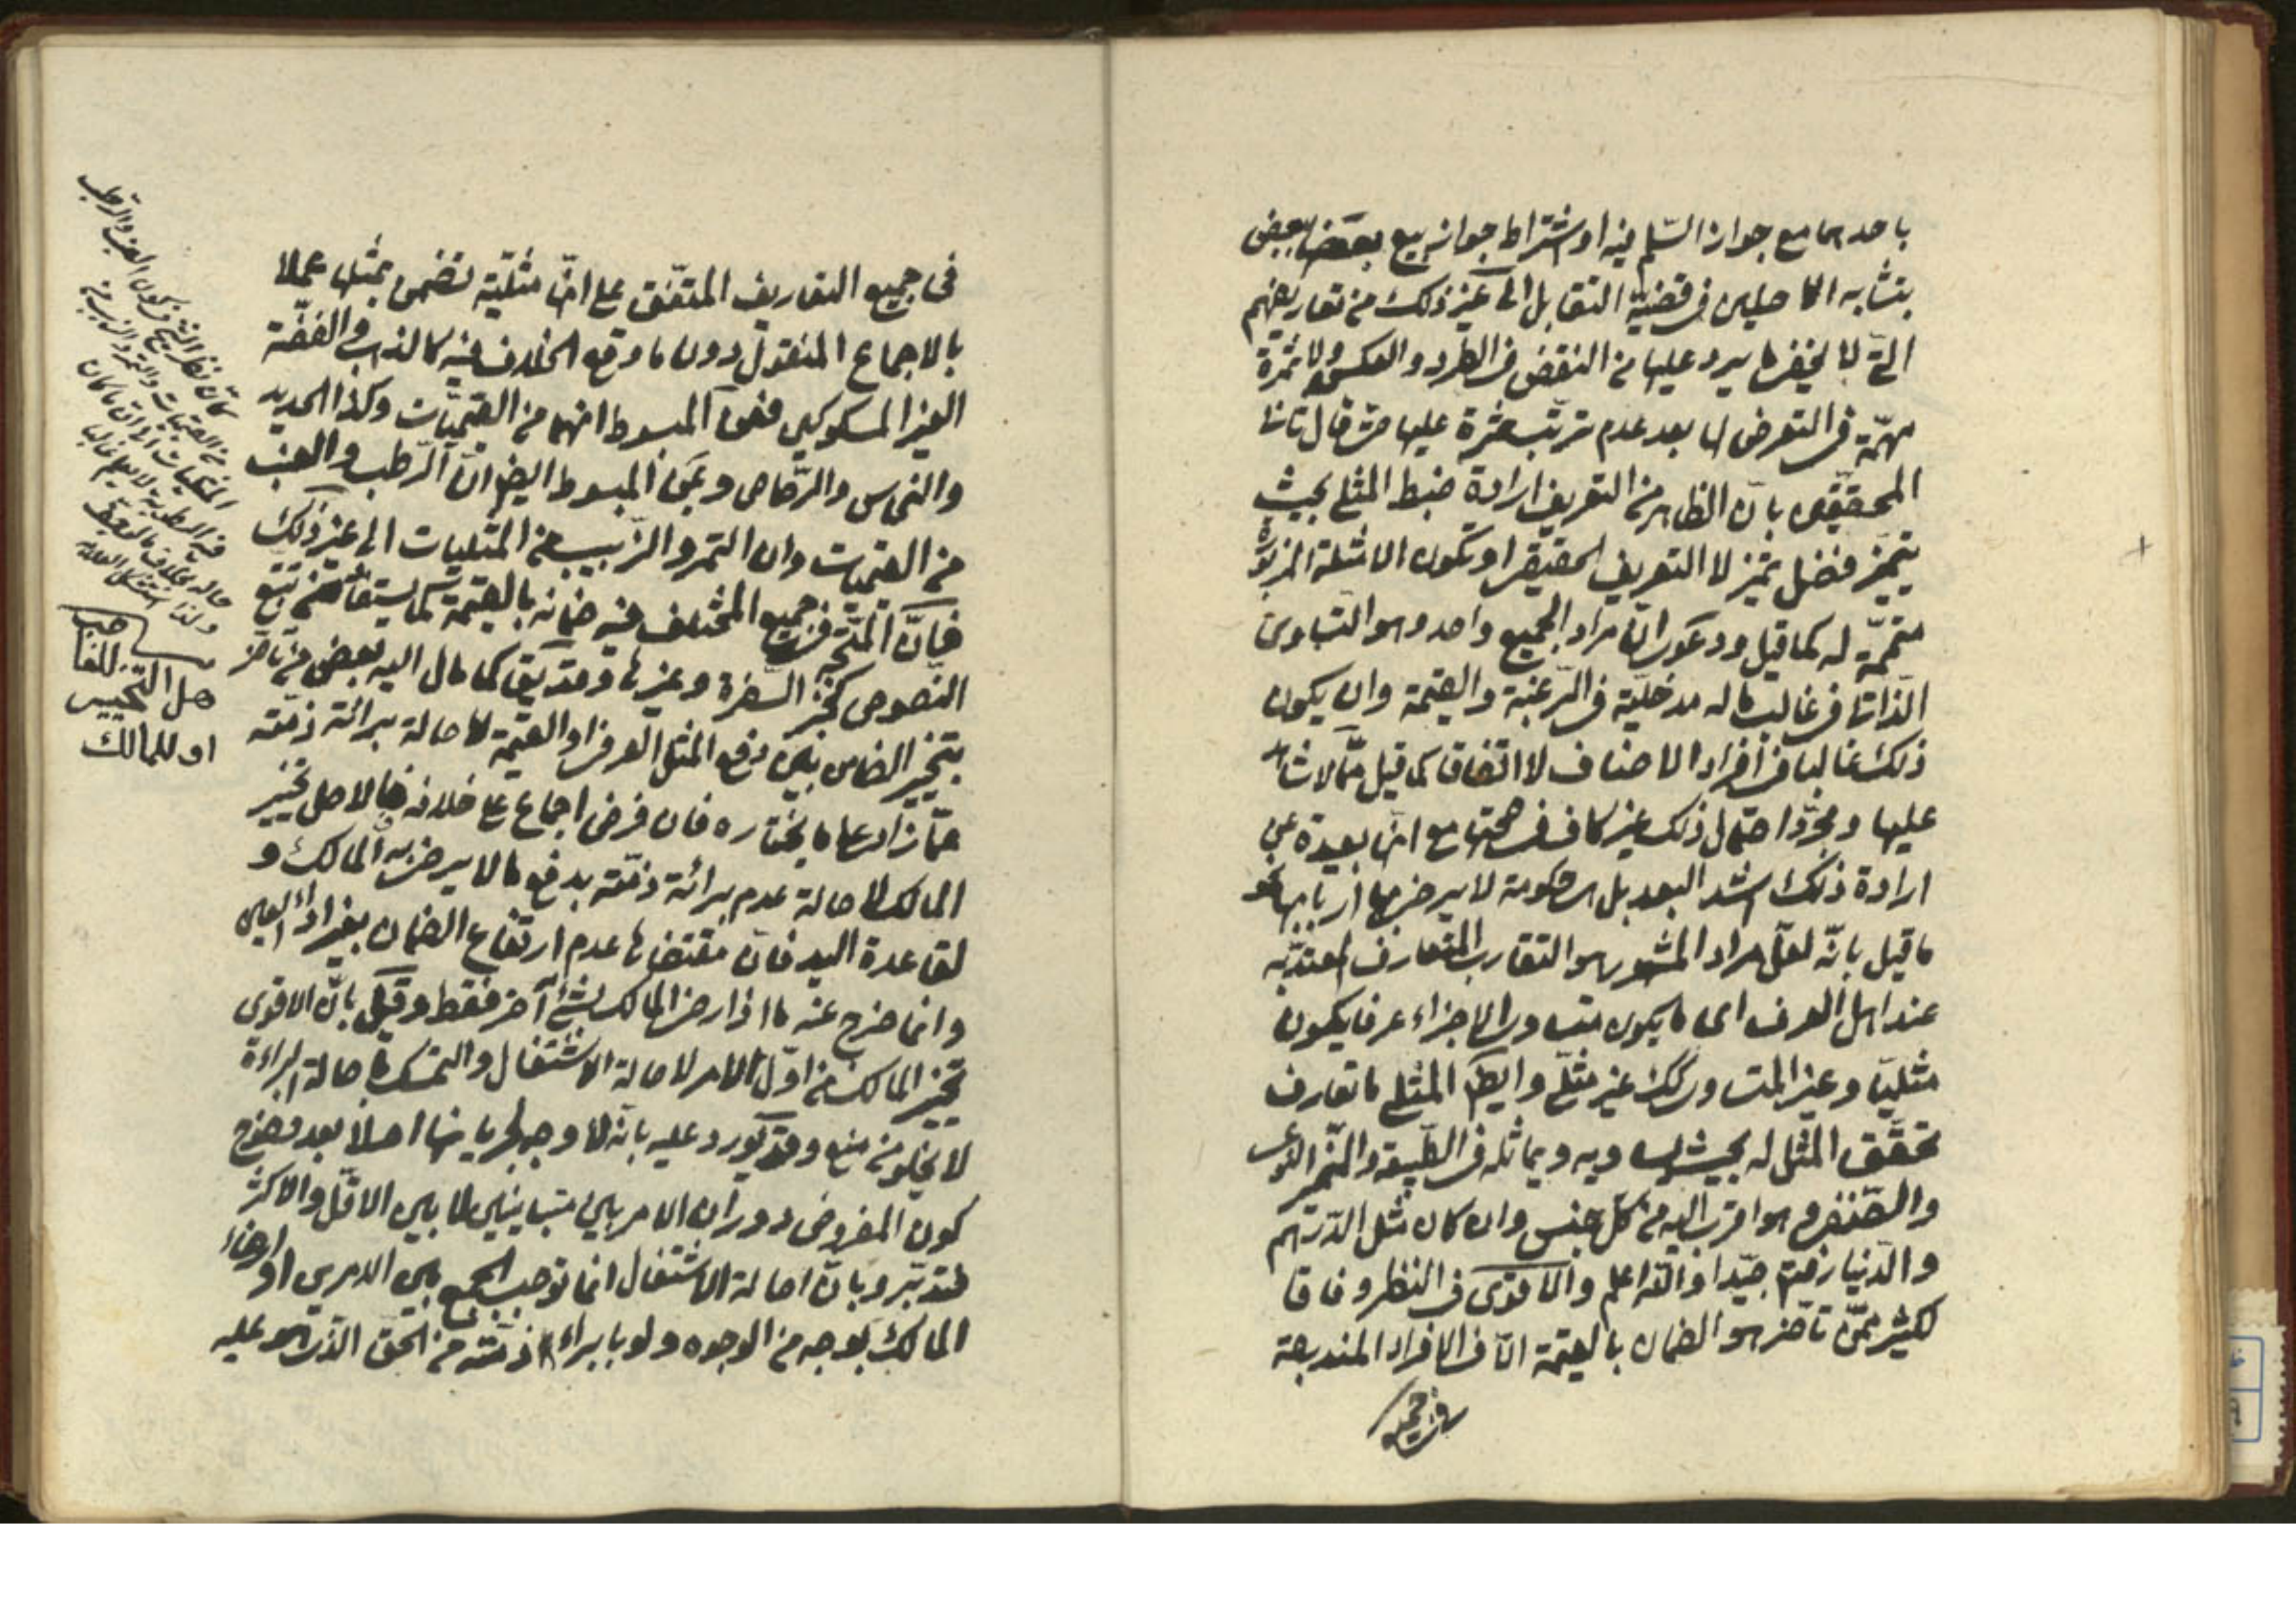 باحدهما مع جواز السّلم فيه او اشتراط جواز بيع بعضه ببعض
بتشابه الاصلين فى قضيّة التقابل الى غير ذلك من تعاريفهم
التى لا يخفى ما يرد عليها من النقض فى الطرد والعكس ولا ثمرة
مهمّة فى التعرض لها بعد عدم ترتّب ثمرة عليها حتى قال ثانى
المحققين بانّ الظاهر من التعريف ارادة ضبط المثلى بحيث
يتميّز فضل تميّز لا التعريف الحقيقى او تكون الامثلة المزبورة
متمّمة له كما قيل ودعوى انّ مراد الجميع واحد وهو التساوى
الذّاتى فى غالب ما له مدخليّة فى الرّغبة والقيمة وان يكون
ذلك غالبا فى افراد الاصناف لا اتفاقا كما قيل ممّا لا شاهد
عليها ومجرّد احتمال ذلك غير كاف فى صحّتها مع انّها بعيدة عن
ارادة ذلك اشد البعد بل هى حكومة لا يرضى بها اربابها كـ
ما قيل بانّه لعلّ مراد المشهور هو التقارب المتعارف المعتدّ به
عند اهل العرف اى ما يكون متساوى الاجزاء عرفا يكون
مثليّا وغير المتساوى كك غير مثلى وايضا المثلى ما تعارف
تحقّق المثل له بحيث يساويه ويماثله فى الطّبيعة والميّز النوعى
والصّنفى وهو اقرب اليه من كل جنس وان كان مثل الدّرهم
والدّينار فتفهّم جيّدا والله اعلم والاقوى فى النظر وفاقا
لكثير ممّن تاخّر هو الضمان بالقيمة الّا فى الافراد المندرجة
فى جميع
فى جميع التعاريف المتّفق على انّها مثليّة تضمن بمثلها عملا
بالاجماع المنقول دون ما وقع الخلاف فيه كالذهب والفضّة
الغير المسكوكين فعن المبسوط انهما من القيميّات وكذا الحديد
والنحاس والرّصاص وعن المبسوط ايضا انّ الرّطب والعنب
من القيميات وان التمر والزّبيب من المثليات الى غير ذلك
فانّ المتّجه فى جميع المختلف فيه ضمانه بالقيمة كما يستفاد من تتبع
النّصوص كخبر السّفرة وغيرها وقد يق كما مال اليه بعض من تاخّر
بتخيير الضامن بين دفع المثل العرفى او القيمة لاصالة برائة ذمّته
عمّا زاد عما يختاره فان فرض اجماع على خلافه فالاصل تخيير
المالك لاصالة عدم برائة ذمّته بدفع ما لا يرضى به المالك و
لقاعدة اليد فانّ مقتضاها عدم ارتفاع الضمان بغير اداء العين
وانما خرج عنه ما اذا رضى المالك بشئ آخر فقط وقيل بانّ الاقوى
تخيير المالك من اوّل الامر لاصالة الاشتغال والتمسك باصالة البراءة
لا يخلو من منع وقد يورد عليه بانّه لا وجه لجريانها اصلا بعد وضوح
كون المفروض دوران الامر بين متباينين لا بين الاقلّ والاكثر
فتدبّر وبانّ اصالة الاشتغال انما توجب الجمع بين الامرين او ارضاء
المالك بوجه من الوجوه ولو بابراء ذمّته من الحق الذى هو عليه
هل التخيير للضا
او للمالك